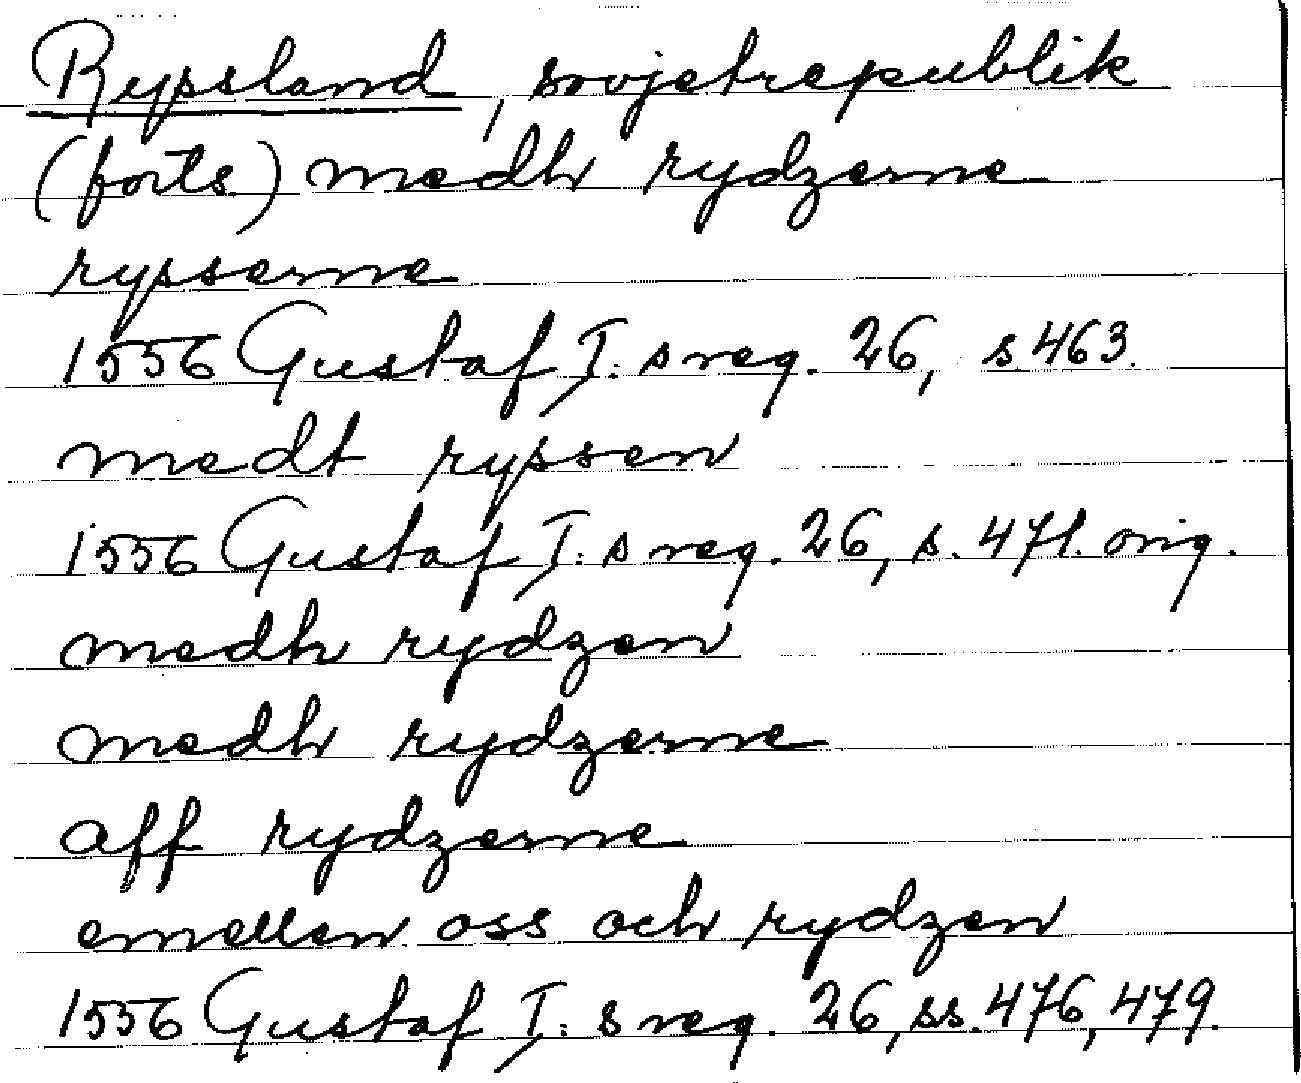 Ryssland, sovjetrepublik
(forts) medh rydzerne
rysserne
1556 Gustaf I:s reg. 26, s 463.
medt ryssen
1556 Gustaf I:s reg. 26, s. 471. orig.
medh rydzen
medh rydzerne
aff rydzerne
emellen oss och rydzen
1556 Gustaf I:s reg. 26, ss. 476, 479.